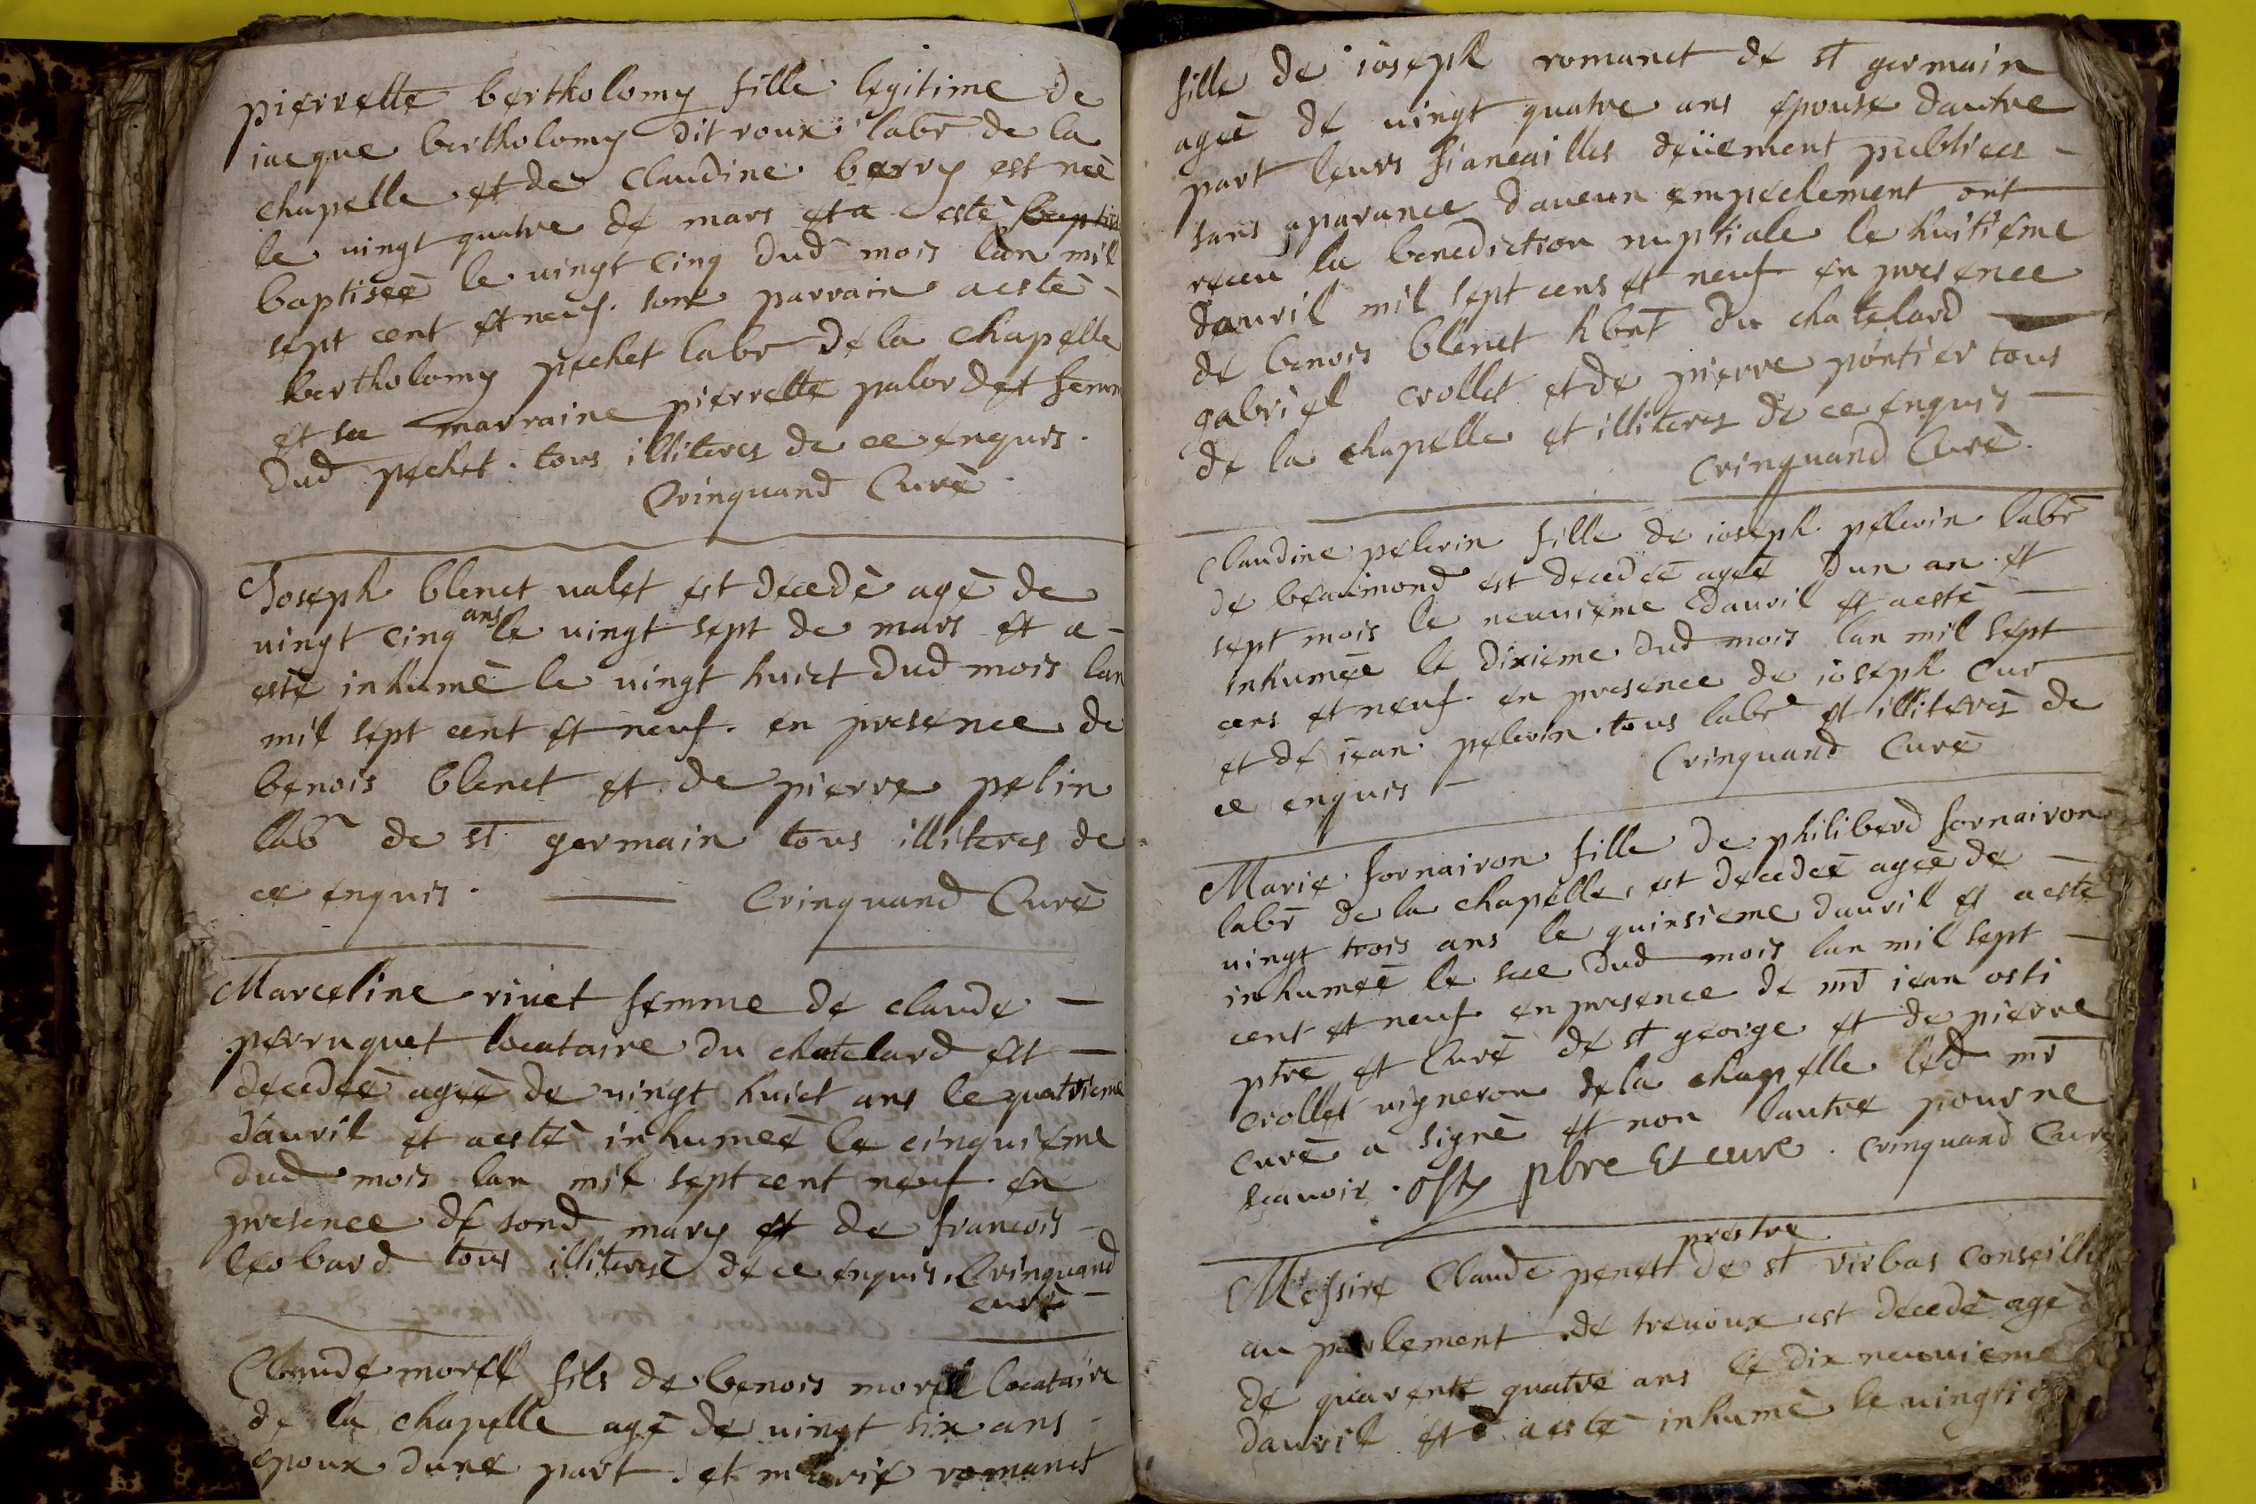 pierrette bertholomy fille legitime de
iacque bertholomy dit roux labr de la
chapelle et de claudine berry est neè
le vingt quatre de mars et a estè baptis
baptiseè le vingt cinq dud mois lan mil
sept cent et neuf. son parrain a estè
bertholomy pechet labr de la chapelle
et sa marraine pierrette palordet femme
dud pechet. tous illiteres de ce enquis.
Crinquand Curè.
Joseph blenet valet est decedè agè de
vingt cinq ans le vingt sept de mars et a -
estè inhumè le vingt huict dud mois lan
mil sept cent et neuf. en presence de
benois blenet et de pierre pelin
labr de st germain tous illiteres de
ce enquis. — Crinquand Curè
Marceline rivet femme de claude —
perruquet locataire du chatelard est —
decedeè ageè de vingt huict ans le quatrieme
d'avril et a estè inhumeè le cinquieme
dud mois lan mil sept cent neuf. en
presence de sond mary et de francois -
leobard tous illiteres de ce enquis. Crinquand
curè -
Claude morell fils de benois morell locataire
de la chapelle agè de vingt six ans -
epoux dune part. et marie romanet
fille de ioseph romanet de st germain
ageè de vingt quatre ans epouse dautre
part leurs fiancailles deüement publiees -
sans aparance daucun empechement ont
receu la benediction nuptiale le huitieme
davril mil sept cens et neuf en presence
de benois blenet hbnt du chatelard —
gabriel crollet et de pierre pontier tous
de la chapelle et illiteres de ce enquis —
Crinquand Curè.
Claudine pelerin fille de ioseph pelerin labr
de beaumond est decedeè ageè dun an et
sept mois le neuvieme davril et a estè —
inhumeè le dixieme dud mois lan mil sept
cens et neuf. en presence de ioseph cur
et de iean pelerin. tous labr et illiteres de
ce enquis - Crinquand Curè
Marie fornairon fille de philiberd fornairon
labr de la chapelle, est decedeè ageè de
vingt trois ans le quinsieme davril et a estè
inhumeè le sae dud mois lan mil sept —
cent et neuf en presence de mr iean osti
ptre et Curè de st george et de pierre
crollet vigneron de la chapelle led mr
curè a signè et non lautre pour ne
scavoir. Osty pbre Et cure. Crinquand Curè
prestre
Messire Claude penett de st virbas Conseill
au parlement de trevoux est decedè agè
de quarente quatre ans le dix neuvieme
davril et a estè inhumè le vingti